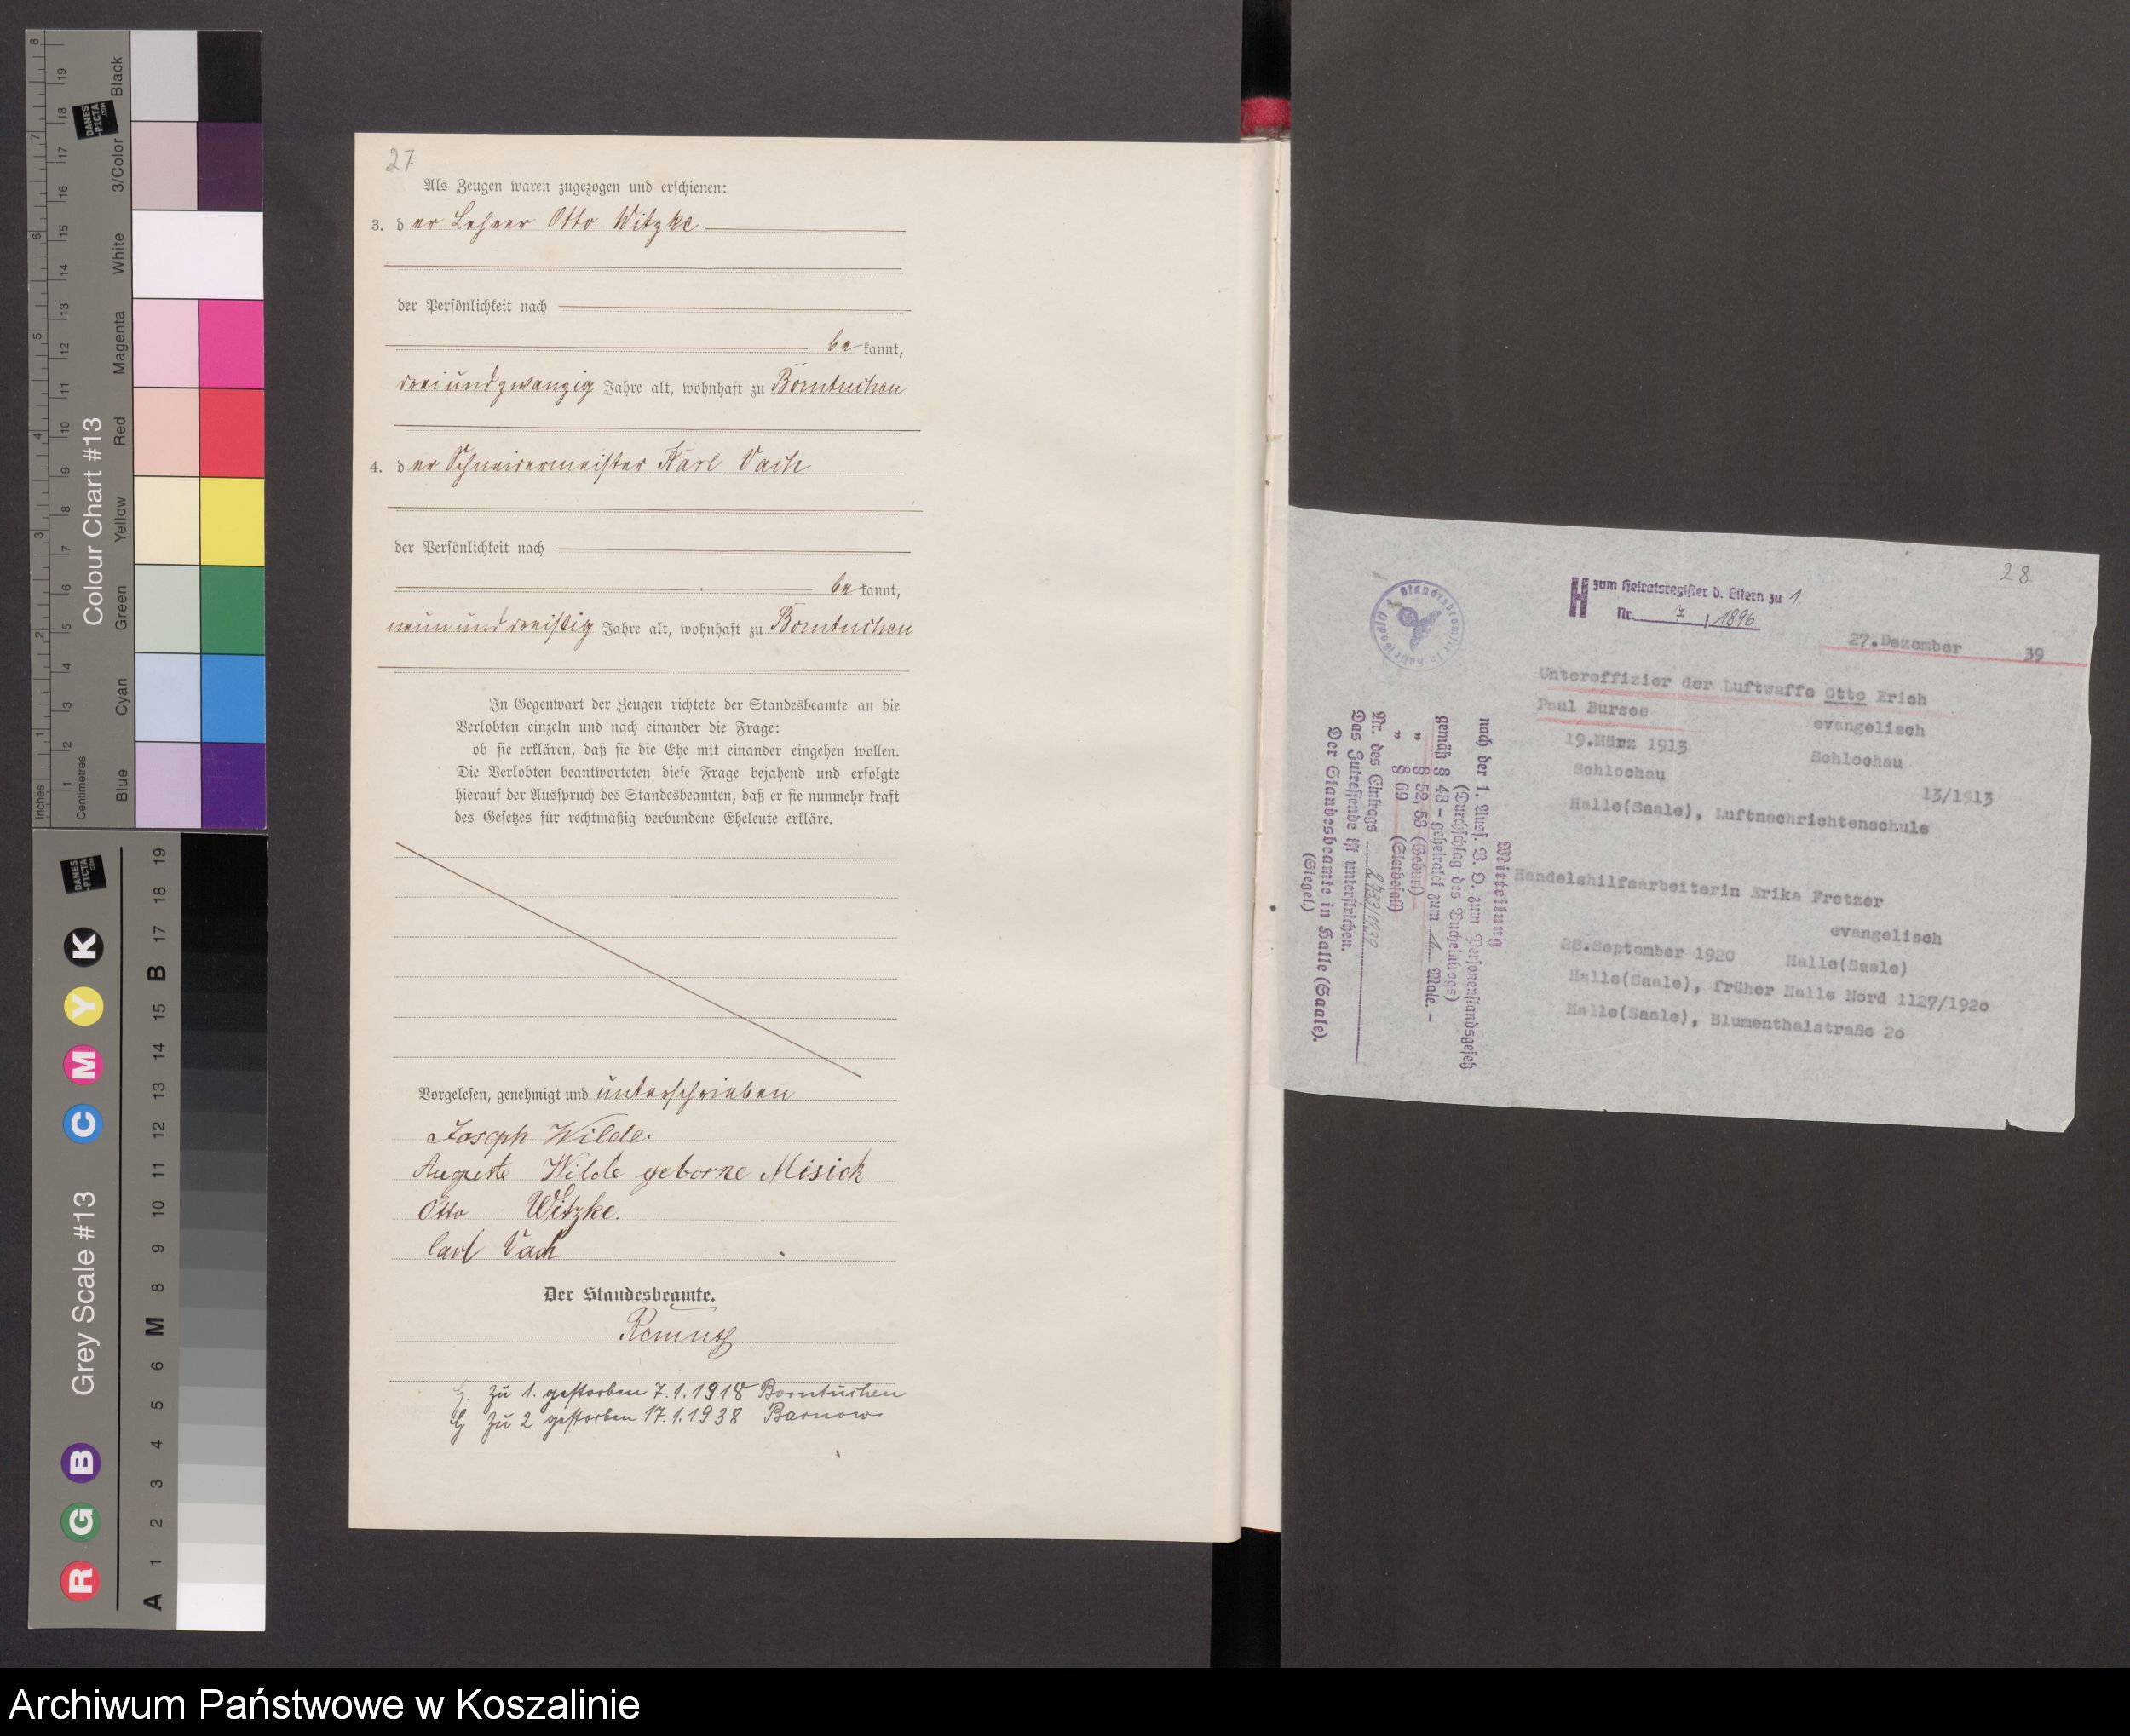 27
Als Zeugen waren zugezogen und erschienen:
3. der Lehrer Otto Witzke
der Persönlichkeit nach
be kannt,
dreiundzwanzig Jahre alt, wohnhaft zu Borntuchen
4. der Schneidermeister Karl Vach
der Persönlichkeit nach
be kannt,
neununddreißig Jahre alt, wohnhaft zu Borntuchen
In Gegenwart der Zeugen richtete der Standesbeamte an die
Verlobten einzeln und nach einander die Frage:
ob sie erklären, daß sie die Ehe mit einander eingehen wollen.
Die Verlobten beantworteten diese Frage bejahend und erfolgte
hierauf der Ausspruch des Standesbeamten, daß er sie nunmehr kraft
des Gesetzes für rechtmäßig verbundene Eheleute erkläre.
Vorgelesen, genehmigt und unterschrieben
Joseph Wilde.
Auguste Wilde geborne Misick
Otto Witzke.
Carl Vach
Der Standesbeamte.
zu 1. gestorben 7.1.1918 Borntuchen
zu 2 gestorben 17.1.1938 Barnow
28
H zum Heiratsregister d. Eltern zu 1
Nr. 7 / 1896
27.Dezember 39
Unteroffizier der Luftwaffe Otto Erich
Paul Bursee
evangelisch
19.März 1913 Schlochau
Schlochau 13/1913
Halle(Saale), Luftnachrichtenschule
Handelshilfsarbeiterin Erika Fretzer
evangelisch
28.September 1920 Halle(Saale)
Halle(Saale), früher Halle Nord 1127/1920
Halle(Saale), Blumenthalstraße 20
Mitteilung
nach der 1. Ausf. V. O. zum Personenstandsgesetz
(Durchschlag des Bucheintrags)
gemäß § 48 - geheiratet zum 1. Male. -
" § 52, 53 (Geburt)
" § 69 (Sterbefall)
Nr. des Eintrags /1939
Das Zutreffende ist unterstrichen.
Der Standesbeamte in Halle (Saale).
(Siegel.)
Colour Chart #13
Inches
Centimetres
Blue Cyan Green Yellow Red Magenta White 3/Color Black
DANES-PICTA.COM
Grey Scale #13
R G B C M Y K
A 1 2 3 4 5 6 M 8 9 10 11 12 13 14 15 B 17 18 19
Archiwum Państwowe w Koszalinie